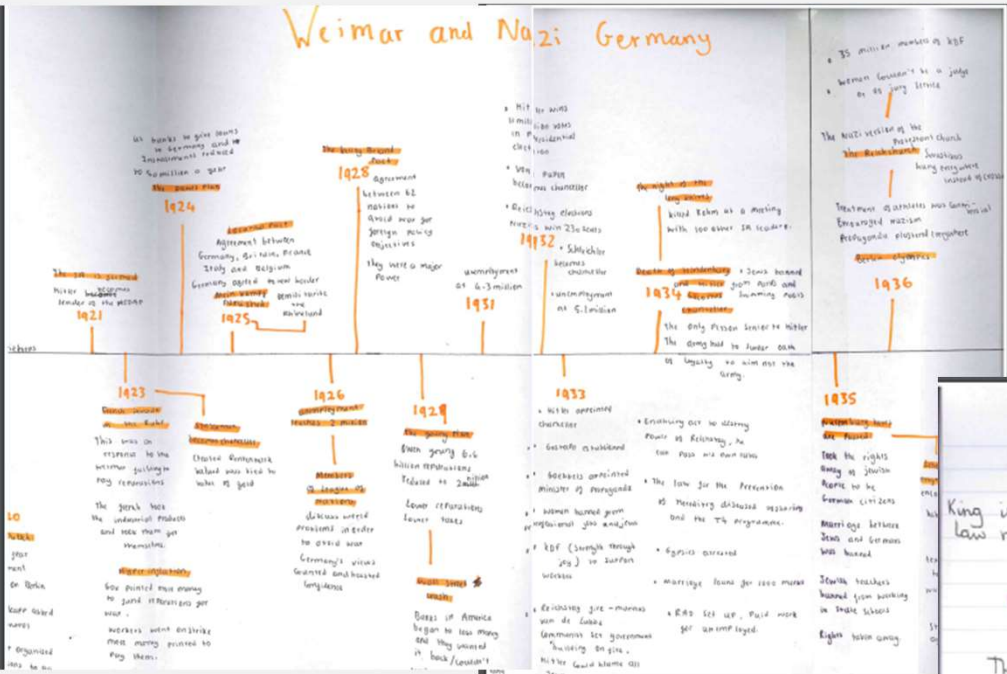 Weimar and Nazi Germany
The SA is formed
Hitler becomes
leader of the NSDAP
1921
US banks to give loans
to Germany and
Instalments reduced
to 50 million a year
The Dawes Plan
1924
Locarno Pact
Agreement between
Germany, Britain, France
Italy and Belgium
Germany agreed to new border
Mein Kampf
Published
demilitarise
the
Rhineland
1925
The Kellogg Briand
Pact
1928
Agreement
between 62
nations to
avoid war for
foreign policy
objectives
They were a major
Power
unemployment
at 4.3 million
1931
• Hitler wins
11 million votes
in Presidential
election
• Von Papen
becomes chancellor
• Reichstag elections
Nazis win 230 seats
1932
• Schleicher
becomes
chancellor
• unemployment
at 5.1 million
The night of the
long knives
killed Rohm at a meeting
with 100 other SA leaders.
Death of Hindenburg
and Hitler
becomes
• Jews banned
from parks and
swimming pools
1934
the only person senior to Hitler
The army had to swear oath
of loyalty to him not the
army.
• 35 million members of KDF
• Women couldn't be a judge
or on jury service
The Nazi version of the
Protestant church
The Reich church
Swastikas
hung everywhere
instead of cross
Treatment of athletes was controversial
Encouraged nazism
Propaganda plastered everywhere
Berlin Olympics
1936
1923
French invade
the Ruhr
This was in
response to the
Weimar failing to
pay reparations
The french took
the industrial products
and took them for
themselves.
Hyper inflation
Gov printed more money
to fund reparations for
war.
Workers went on strike
more money printed to
pay them.
Stresemann
becomes chancellor
Created Rentenmark
value of gold
1926
unemployment
reaches 2 million
Members
of league of
nations
discuss world
problems in order
to avoid war
Germany's views
counted and boosted
confidence
1929
The Young Plan
Owen Young 6.6
billion reparations
Reduced to 2 billion
Lower reparations
Lower taxes
Wall Street
crash
Banks in America
began to lose money
and they wanted
it back / couldn't
1933
• Hitler appointed
chancellor
• Gestapo established
• Goebbels appointed
minister of Propaganda
• Women banned from
professional jobs
• KDF (Strength through
joy) to support
workers
• Reichstag fire - marinus
van de Lubbe
Communist set government
building on fire.
Hitler could blame all
• Enabling act to destroy
Power of Reichstag, he
can pass his own rules
• The law for the Prevention
of Hereditary diseased offspring
and the T4 programme.
• Gypsies arrested
• Marriage loans for 1000 marks
• RAD set up, Paid work
for unemployed.
1935
Nuremberg laws
are passed
Took the rights
away of jewish
People to be
German citizens
Marriage between
Jews and Germans
was banned
Jewish teachers
banned from working
in state schools
Rights taken away.
King
law